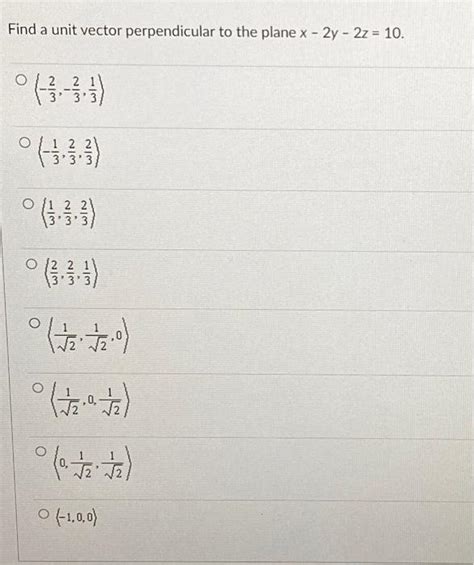 Find a unit vector perpendicular to the plane x - 2y - 2z = 10.
⟨-2/3, -2/3, 1/3⟩
⟨-1/3, 2/3, 2/3⟩
⟨1/3, 2/3, 2/3⟩
⟨2/3, 2/3, 1/3⟩
⟨1/√2, 1/√2, 0⟩
⟨1/√2, 0, 1/√2⟩
⟨0, 1/√2, 1/√2⟩
⟨-1, 0, 0⟩